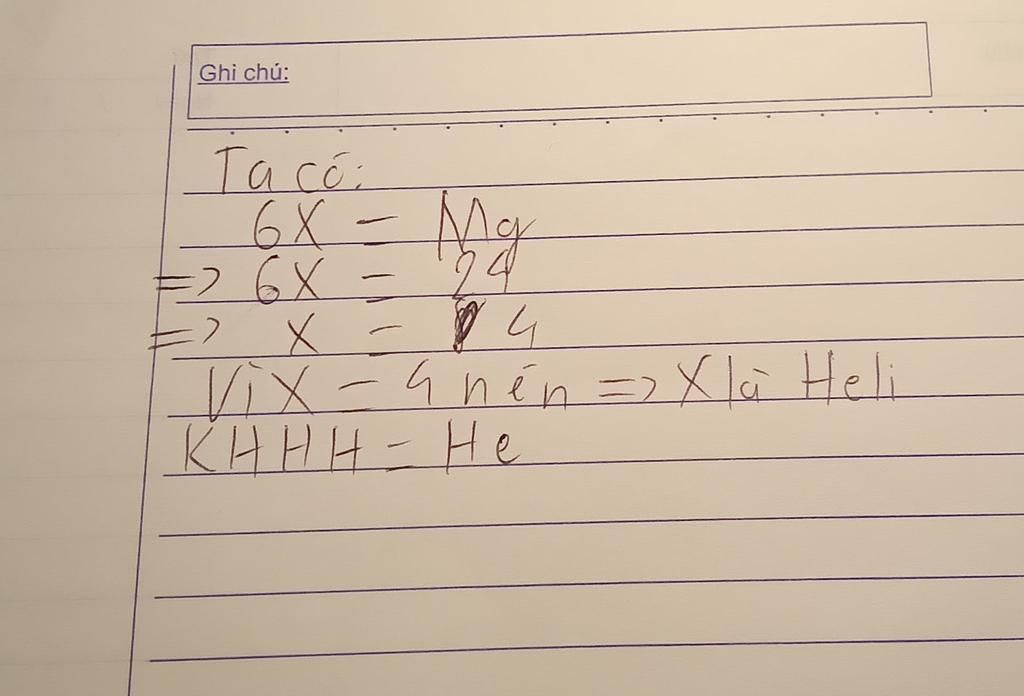 Ghi chú:
Ta có:
6X = Mg
=> 6X = 24
=> X = 4
Vì X = 4 nén => X là Heli
KHHH = He